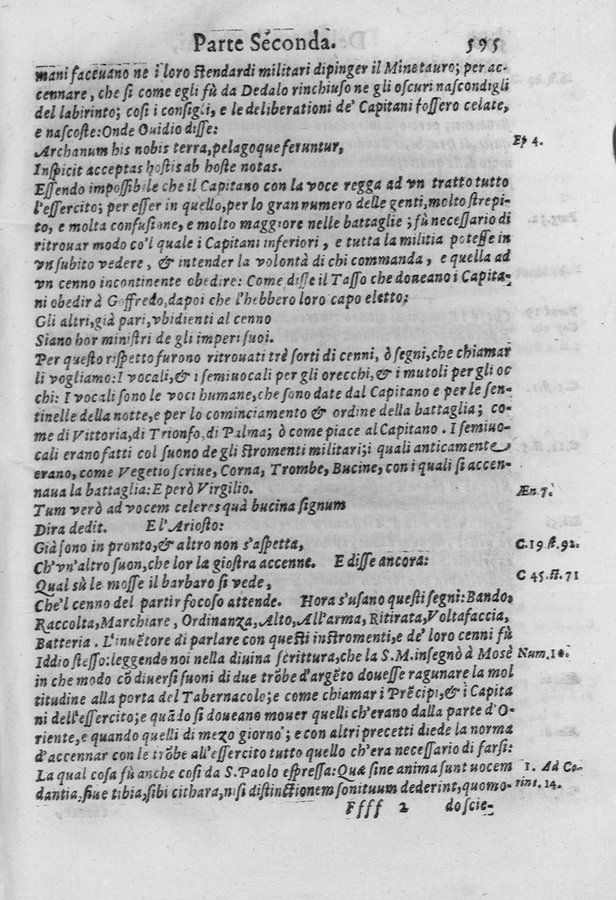 Parte Seconda. 595
mani faceuano ne i loro stendardi militari dipinger il Minotauro; per ac-
cennare, che si come egli fù da Dedalo rinchiuso ne gli oscuri nascondigli
del labirinto; cosi i consigli, e le deliberationi de' Capitani fossero celate,
e nascoste: Onde Ouidio disse:
Archanum his nobis terra, pelagoque feruntur, Ep 4.
Inspicit acceptas hostis ab hoste notas.
Essendo impossibile che il Capitano con la voce regga ad vn tratto tutto
l'essercito; per esser in quello, per lo gran numero delle genti, molto strepi-
to, e molta confusione, e molto maggiore nelle battaglie; fù necessario di
ritrouar modo co'l quale i Capitani inferiori, e tutta la militia potesse in
vn subito vedere, & intender la volontà di chi commanda, e quella ad
vn cenno incontinente obedire: Come disse il Tasso che doueano i Capita-
ni obedir à Goffredo, dapoi che l'hebbero loro capo eletto;
Gli altri, già pari, vbidienti al cenno
Siano hor ministri de gli imperi suoi.
Per questo rispetto furono ritrouati trè sorti di cenni, ò segni, che chiamar
li vogliamo: I vocali, & i semiuocali per gli orecchi, & i mutoli per gli oc
chi: I vocali sono le voci humane, che sono date dal Capitano e per le sen-
tinelle della notte, e per lo cominciamento & ordine della battaglia; co-
me di Vittoria, di Trionfo, di Palma; ò come piace al Capitano. I semiuo-
cali erano fatti col suono de gli stromenti militari; i quali anticamente
erano, come Vegetio scriue, Corna, Trombe, Bucine, con i quali si accen-
naua la battaglia: E però Virgilio. Æn. 7.
Tum verò ad vocem celeres quà bucina signum
Dira dedit. E l'Ariosto:
Già sono in pronto, & altro non s'aspetta, C. 19 st. 92.
Ch'vn'altro suon, che lor la giostra accenne. E disse ancora:
Qual sù le mosse il barbaro si vede, C 45. st. 71
Che'l cenno del partir focoso attende. Hora s'usano questi segni: Bando,
Raccolta, Marchiare, Ordinanza, Alto, All'arma, Ritirata, Voltafaccia,
Batteria. L'inuẽtore di parlare con questi instromenti, e de' loro cenni fù
Iddio stesso: leggendo noi nella diuina scrittura, che la S. M. insegnò à Mosè Num. 10.
in che modo cõ diuersi suoni di due trõbe d'argẽto douesse ragunare la mol
titudine alla porta del Tabernacolo; e come chiamar i Prẽcipi, & i Capita
ni dell'essercito; e quãdo si doueano mouer quelli ch'erano dalla parte d'O-
riente, e quando quelli di mezo giorno; e con altri precetti diede la norma
d'accennar con le trõbe all'essercito tutto quello ch'era necessario di farsi:
La qual cosa fù anche cosi da S. Paolo espressa: Quæ sine anima sunt uocem 1. Ad Co-
dantia, siue tibia, sibi cithara, nisi distinctionem sonituum dederint, quomo- rint. 14.
Ffff 2 do scie-